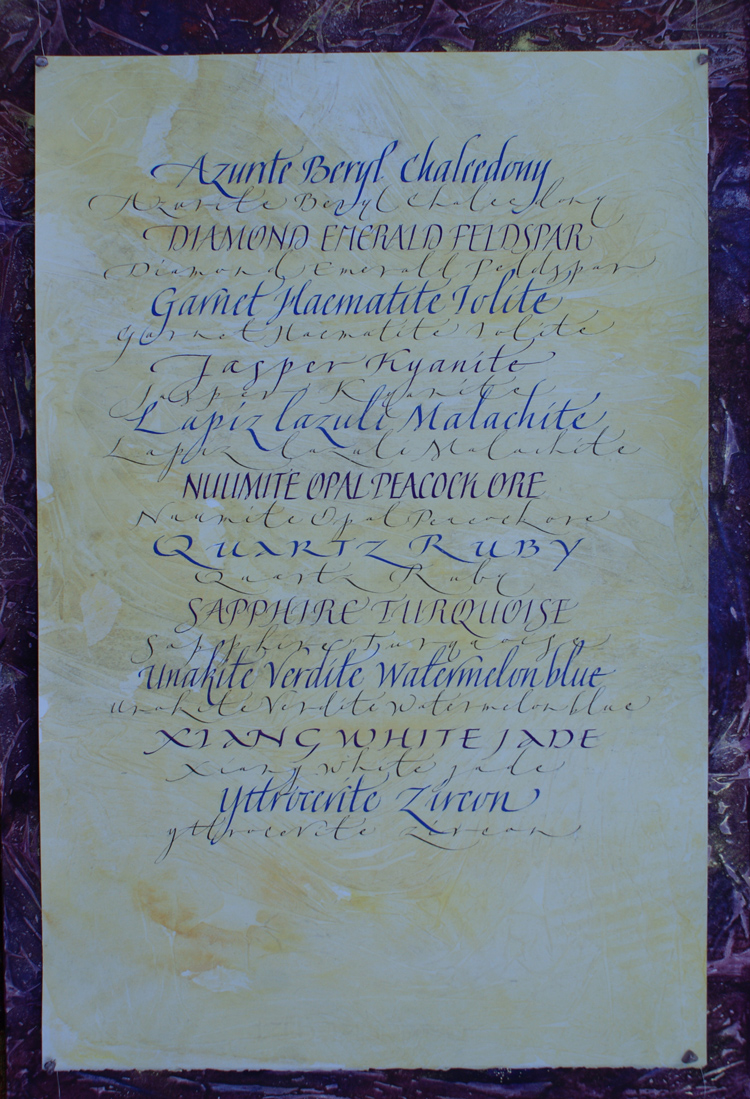 Azurite Beryl Chalcedony
Azurite Beryl Chalcedony
DIAMOND EMERALD FELDSPAR
Diamond Emerald Feldspar
Garnet Haematite Iolite
garnet Haematite Iolite
Jasper Kyanite
Jasper Kyanite
Lapiz lazuli Malachite
Lapiz lazuli Malachite
NUUMITE OPAL PEACOCK ORE
Nuumite Opal Peacock ore
QUARTZ RUBY
Quartz Ruby
SAPPHIRE TURQUOISE
Sapphire Turquoise
Unakite Verdite Watermelon blue
Unakite Verdite Watermelon blue
XIANG WHITE JADE
Xiang White jade
Yttrocerite Zircon
yttrocerite zircon